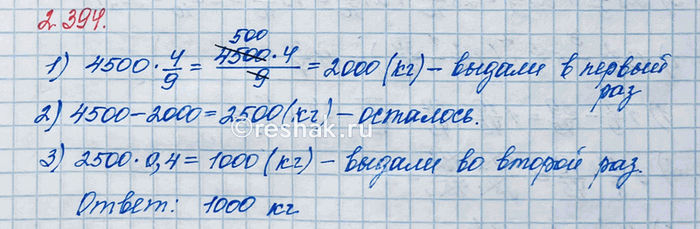 2.394.
1) 4500 · 4/9 = 4500 · 4/9 = 2000 (кг) – выдали в первый
500
раз
2) 4500 – 2000 = 2500 (кг) – осталось.
©reshak.ru
3) 2500 · 0,4 = 1000 (кг) – выдали во второй раз.
Ответ: 1000 кг